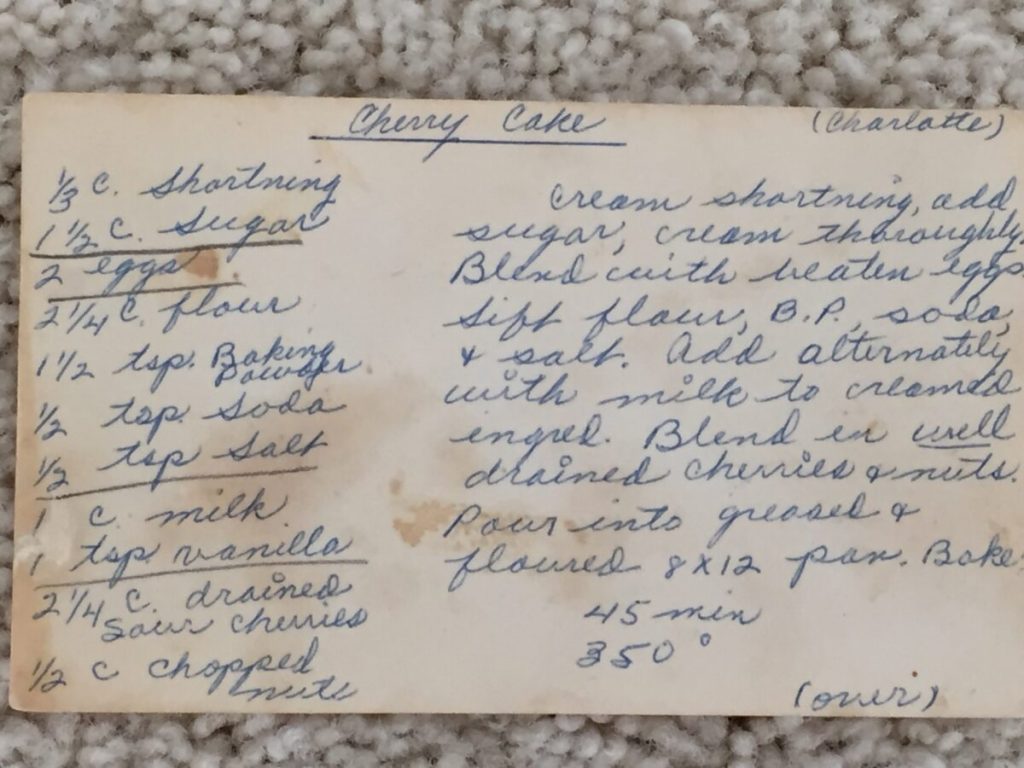 Cherry Cake
(Charlotte)
1/3 c. Shortning
1 1/2 c. Sugar
2 eggs
2 1/4 c. flour
1 1/2 tsp. Baking
Powder
1/2 tsp Soda
1/2 tsp Salt
1 c. milk
1 tsp vanilla
2 1/4 c. drained
Sour cherries
1/2 c chopped
nuts
Cream shortning, add
sugar, cream thoroughly.
Blend with beaten eggs
Sift flour, B.P., soda,
& salt. Add alternately
with milk to creamed
ingred. Blend in well
drained cherries & nuts.
Pour into greased &
floured 8X12 pan. Bake
45 min
350°
(over)